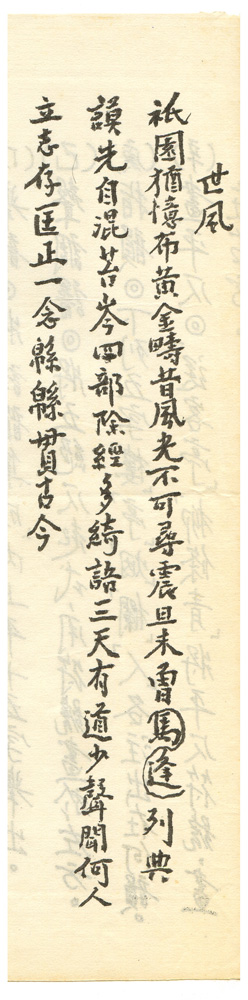 世風
祇園猶憶布黃金疇昔風光不可尋震旦未曾馬逢列典
謨先自混苔岑四部除經多綺語三天有道少聲聞何人
立志存匡正一念緜緜貫古今